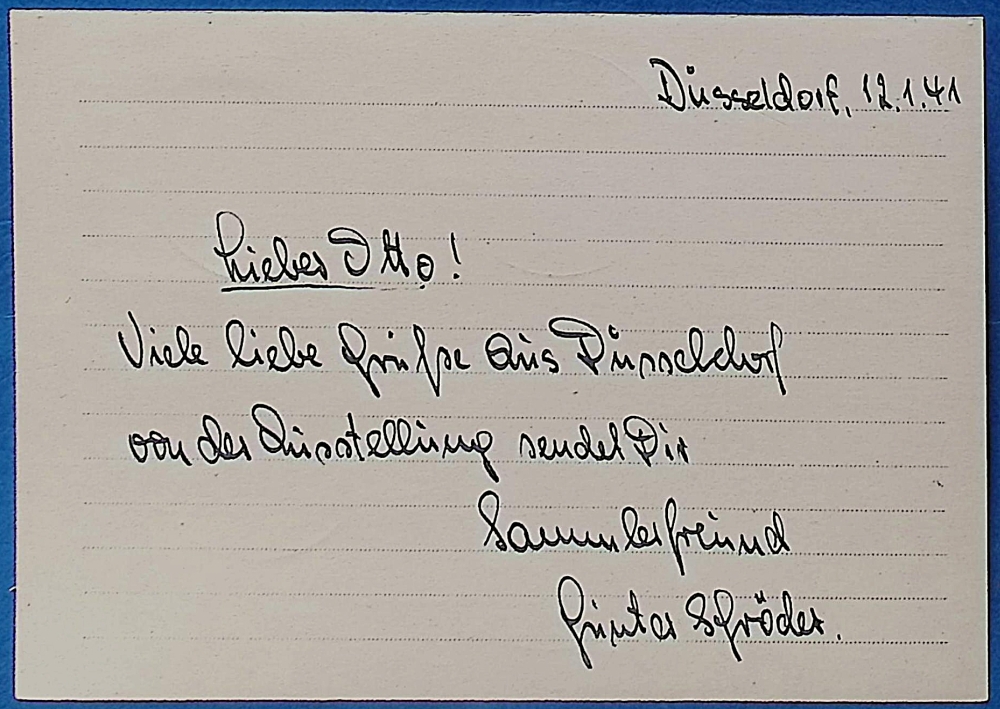 Düsseldorf, 12.1.41
Lieber Otto!
Viele liebe Grüße aus Düsseldorf
von der Ausstellung sendet Dir
Sammlerfreund
Günter Schröder.